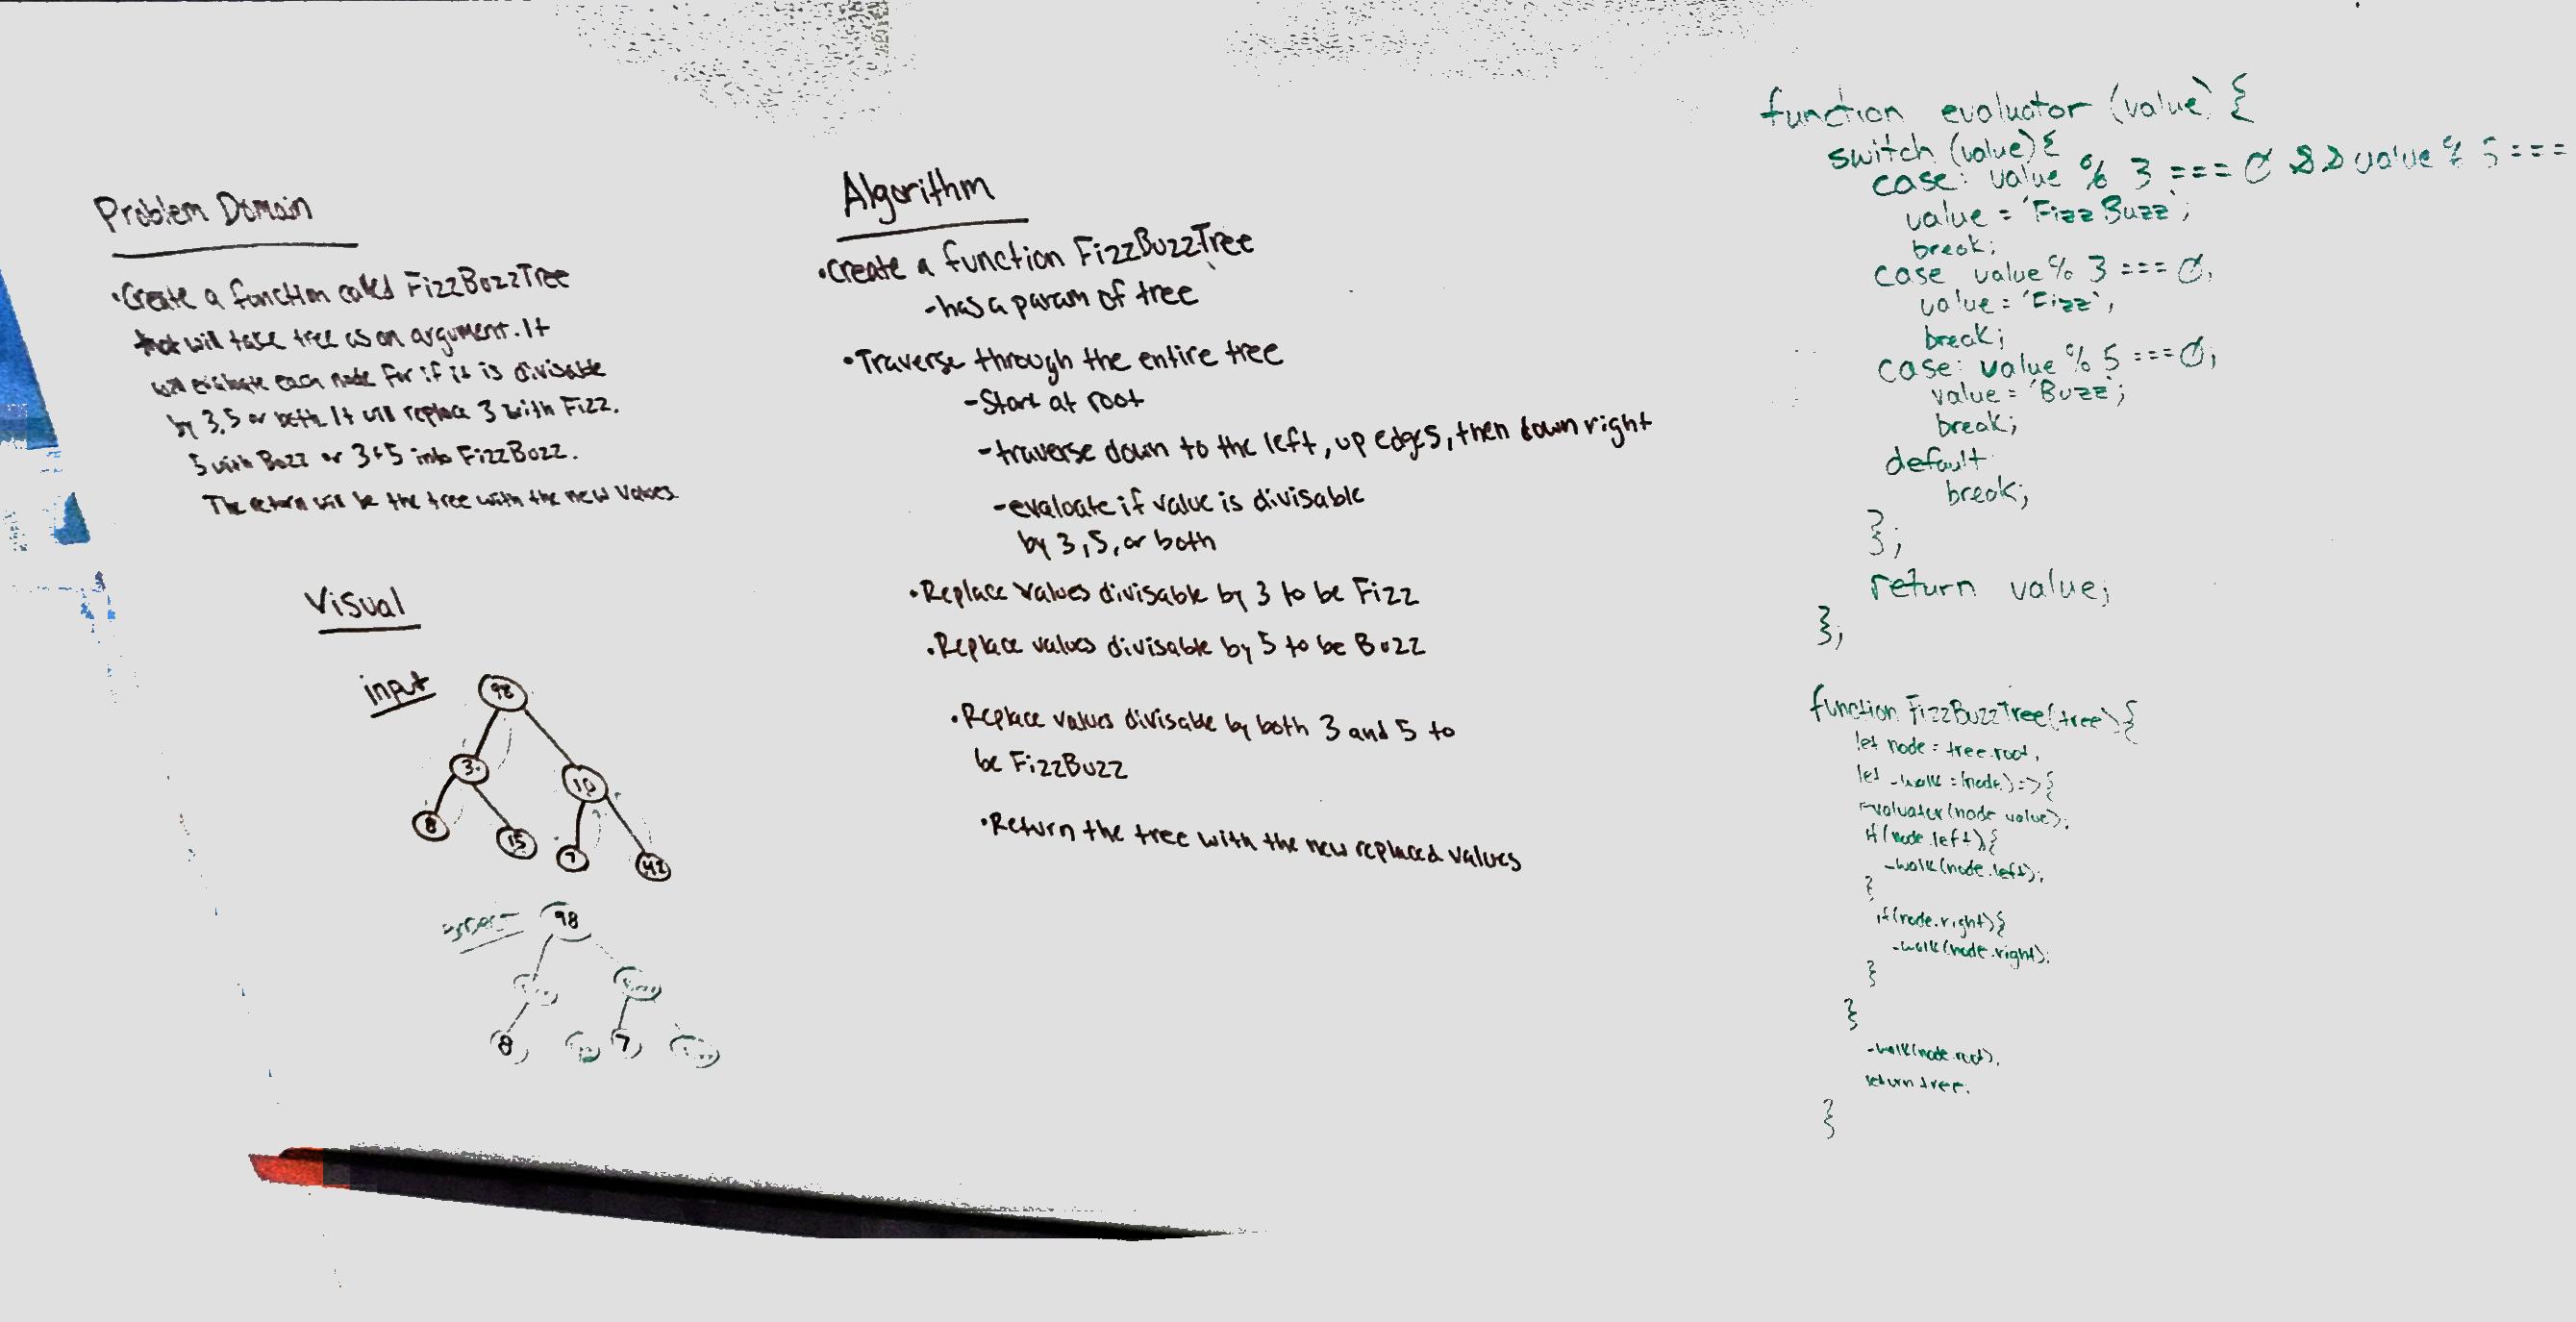 Problem Domain
•Create a function called FizzBuzzTree
that will take tree as an argument. It
will evaluate each node for if it is divisable
by 3,5 or both. It will replace 3 with Fizz.
5 with Buzz or 3&5 into FizzBuzz.
The return will be the tree with the new values
Visual
input
98
3
10
8
15
7
42
98
8
7
Algorithm
•Create a function FizzBuzzTree
-has a param of tree
•Traverse through the entire tree
-Start at root
-traverse down to the left, up edges, then down right
-evaluate if value is divisable
by 3,5, or both
•Replace values divisable by 3 to be Fizz
•Replace values divisable by 5 to be Buzz
•Replace values divisable by both 3 and 5 to
be FizzBuzz
•Return the tree with the new replaced values
function evaluator (value) {
switch (value){
case: value % 3 === 0 && value % 5 ===
value = 'FizzBuzz';
break;
case value % 3 === 0;
value = 'Fizz';
break;
case: value % 5 === 0;
value = 'Buzz';
break;
default
break;
};
return value;
};
function FizzBuzzTree(tree){
let node = tree.root;
let _walk = (node) => {
evaluator(node.value);
if(node.left){
_walk(node.left);
}
if(node.right){
_walk(node.right);
}
}
_walk(node.root);
return tree;
}